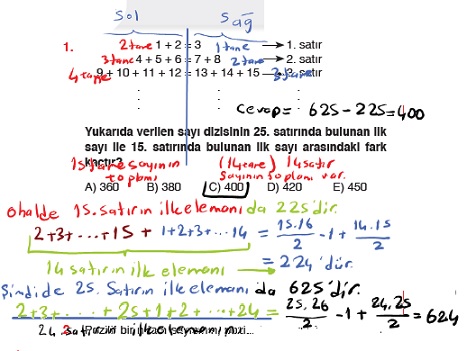 Sol Sağ
1. 2 tane 1 + 2 = 3 1 tane → 1. satır
3 tane 4 + 5 + 6 = 7 + 8 2 tane → 2. satır
4 tane 9 + 10 + 11 + 12 = 13 + 14 + 15 3 tane → 3. satır
Cevap = 625 - 225 = 400
Yukarıda verilen sayı dizisinin 25. satırında bulunan ilk
sayı ile 15. satırında bulunan ilk sayı arasındaki fark
kaçtır?
15 tane sayının toplamı (14 tane) 14 satır sayının toplamı var.
A) 360 B) 380 C) 400 D) 420 E) 450
o halde 15. satırın ilk elemanı da 225'dir.
2+3+...+15 + 1+2+3+...14 = 15.16/2 - 1 + 14.15/2
14 satırın ilk elemanı → = 224'dür.
Şimdi de 25. Satırın ilk elemanı da 625'dir.
2+3+...+25+1+2+...+24 = 25.26/2 - 1 + 24.25/2 = 624